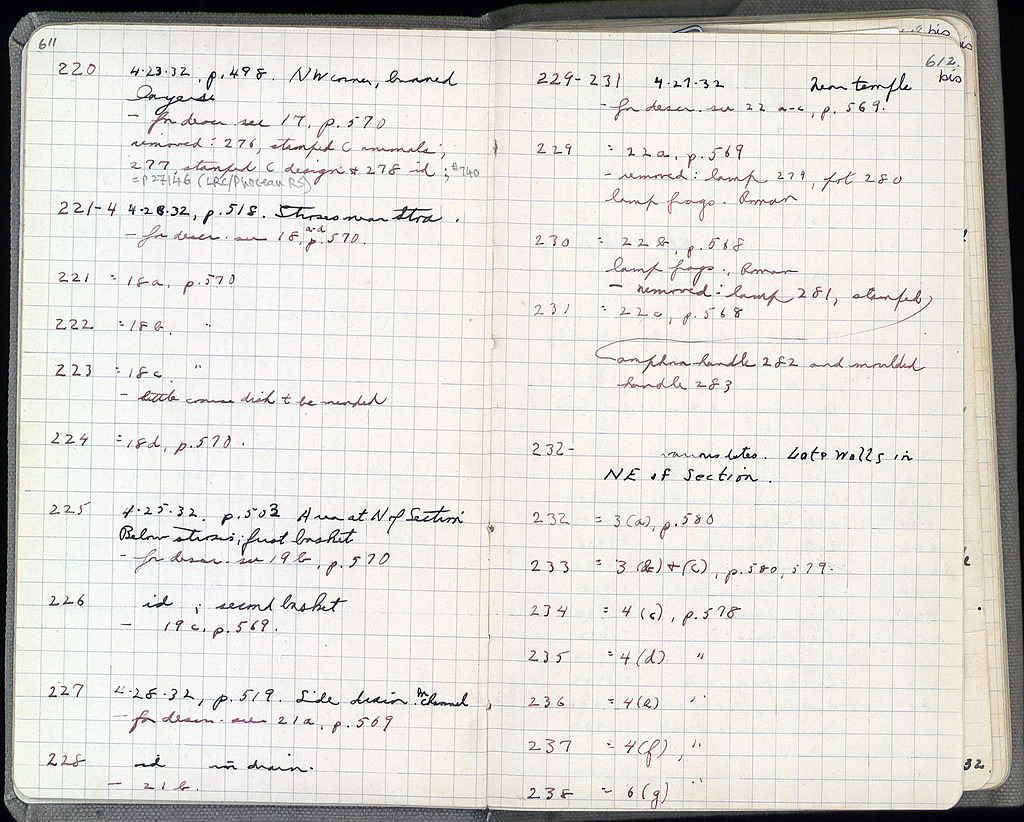 611
220 4·23·32, p. 498. NW corner, burned
layers.
- for descr. see 17, p. 570
removed: 276, stamped C animals;
277, stamped C design & 278 id; #740
= P27146 (LRC/Phocean RS)
221-4 4·28·32, p. 518. Stroses near Stoa.
- for descr. see 18 a-d, p. 570.
221 = 18a, p. 570
222 = 18b. "
223 = 18c. "
- little coarse dish to be mended
224 = 18d, p. 570.
225 4·25·32. p. 503 Area at N of Section
Below stroses; first basket
- for descr. see 19b, p. 570
226 id ; second basket
- 19c, p. 569.
227 4·28·32, p. 519. Side drain: in channel
- for descr. see 21a, p. 569
228 id in drain.
- 21b.
612
bis
229-231 4·27·32 Near temple
- for descr. see 22 a-c, p. 569.
229 = 22a, p. 569
- removed: lamp 279, fot 280
lamp frags. Roman
230 = 22b, p. 568
lamp frags., Roman
- removed: lamp 281, stamped
231 = 22c, p. 568
amphora handle 282 and moulded
handle 283
232- various dates. Late Walls in
NE of Section.
232 = 3(a), p. 580
233 = 3(b) + (c), p. 580, 579.
234 = 4(c), p. 578
235 = 4(d) "
236 = 4(e) "
237 = 4(f), "
238 = 6(g) "
bis
32.